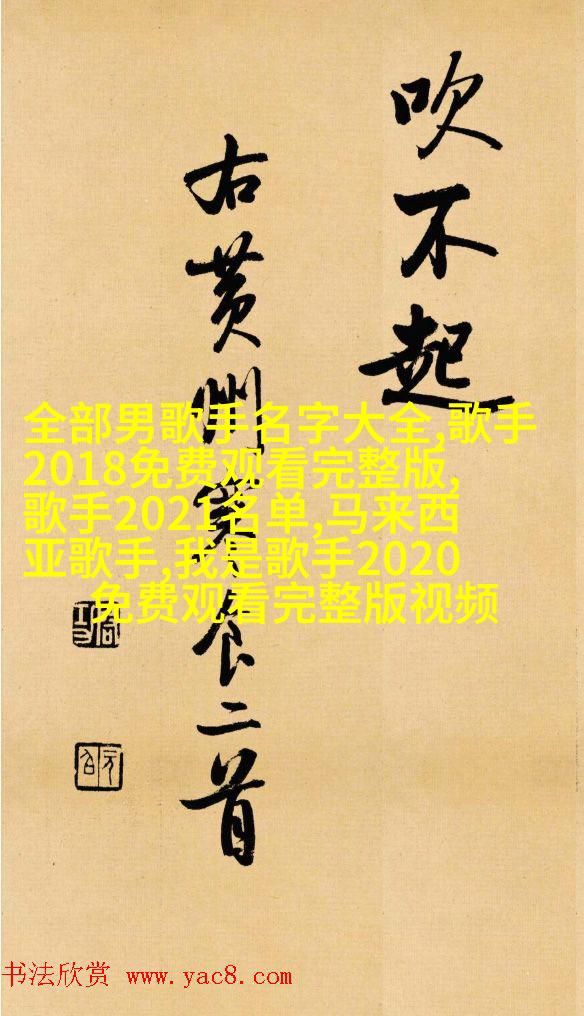 吹不起
右黄州寒食二首
全部男歌手名字大全,歌手
2018免费观看完整版,
歌手2021名单,马来西
亚歌手,我是歌手2020
免费观看完整版视频
书法欣赏 www.yac8.com